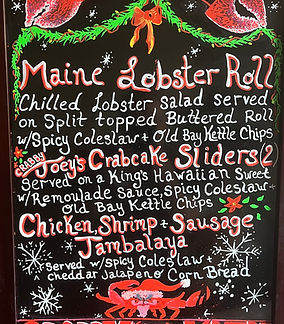 Maine Lobster Roll
Chilled Lobster, salad served
on Split topped Buttered Roll
w/Spicy Coleslaw + Old Bay Kettle Chips
CRABBY Joey's Crabcake Sliders (2)
Served on a King's Hawaiian Sweet
w/Remoulade Sauce, Spicy Coleslaw +
Old Bay Kettle Chips
Chicken, Shrimp + Sausage
Jambalaya
Served w/ Spicy Coleslaw +
Cheddar Jalapeno Corn Bread